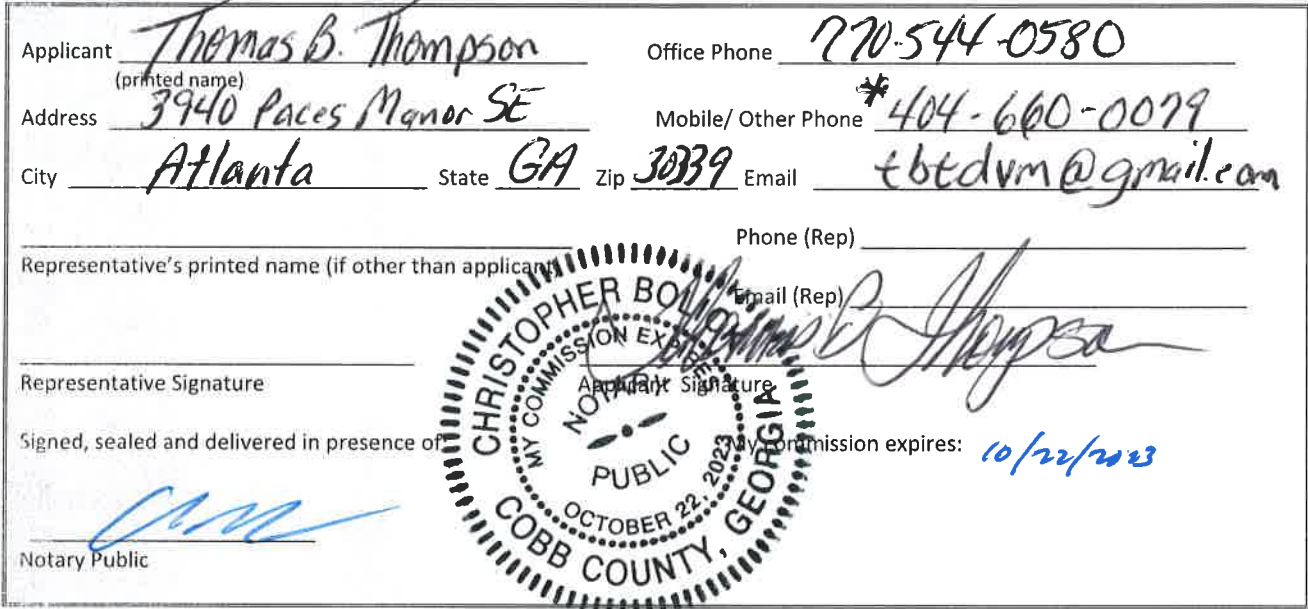 Applicant Thomas B. Thompson Office Phone 770-544-0580
(printed name)
Address 3940 Paces Manor SE Mobile/ Other Phone *404-660-0079
City Atlanta State GA Zip 30339 Email tbtdvm@gmail.com
Phone (Rep)
Representative's printed name (if other than applicant)
Email (Rep)
Thomas B Thompson
Representative Signature Applicant Signature
Signed, sealed and delivered in presence of: My commission expires: 10/22/2023
Notary Public
CHRISTOPHER
COBB COUNTY, GEORGIA
MY COMMISSION EXPIRES
OCTOBER 22, 2023
NOTARY
PUBLIC